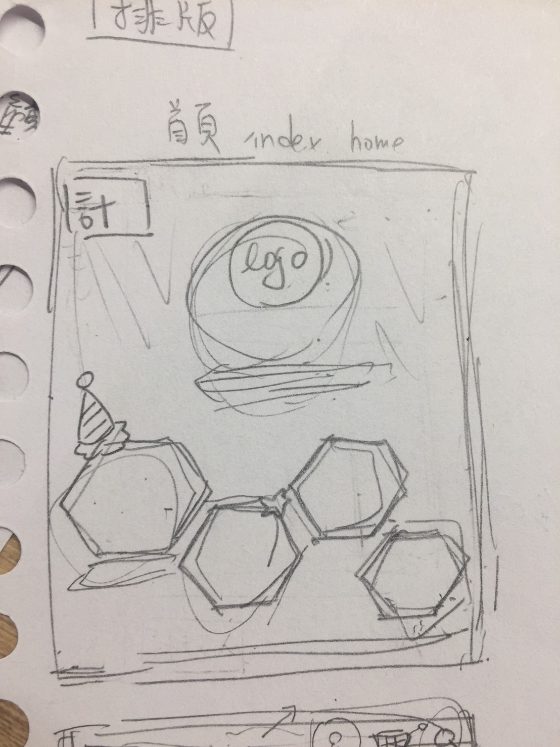 排版
首頁 index home
計
logo